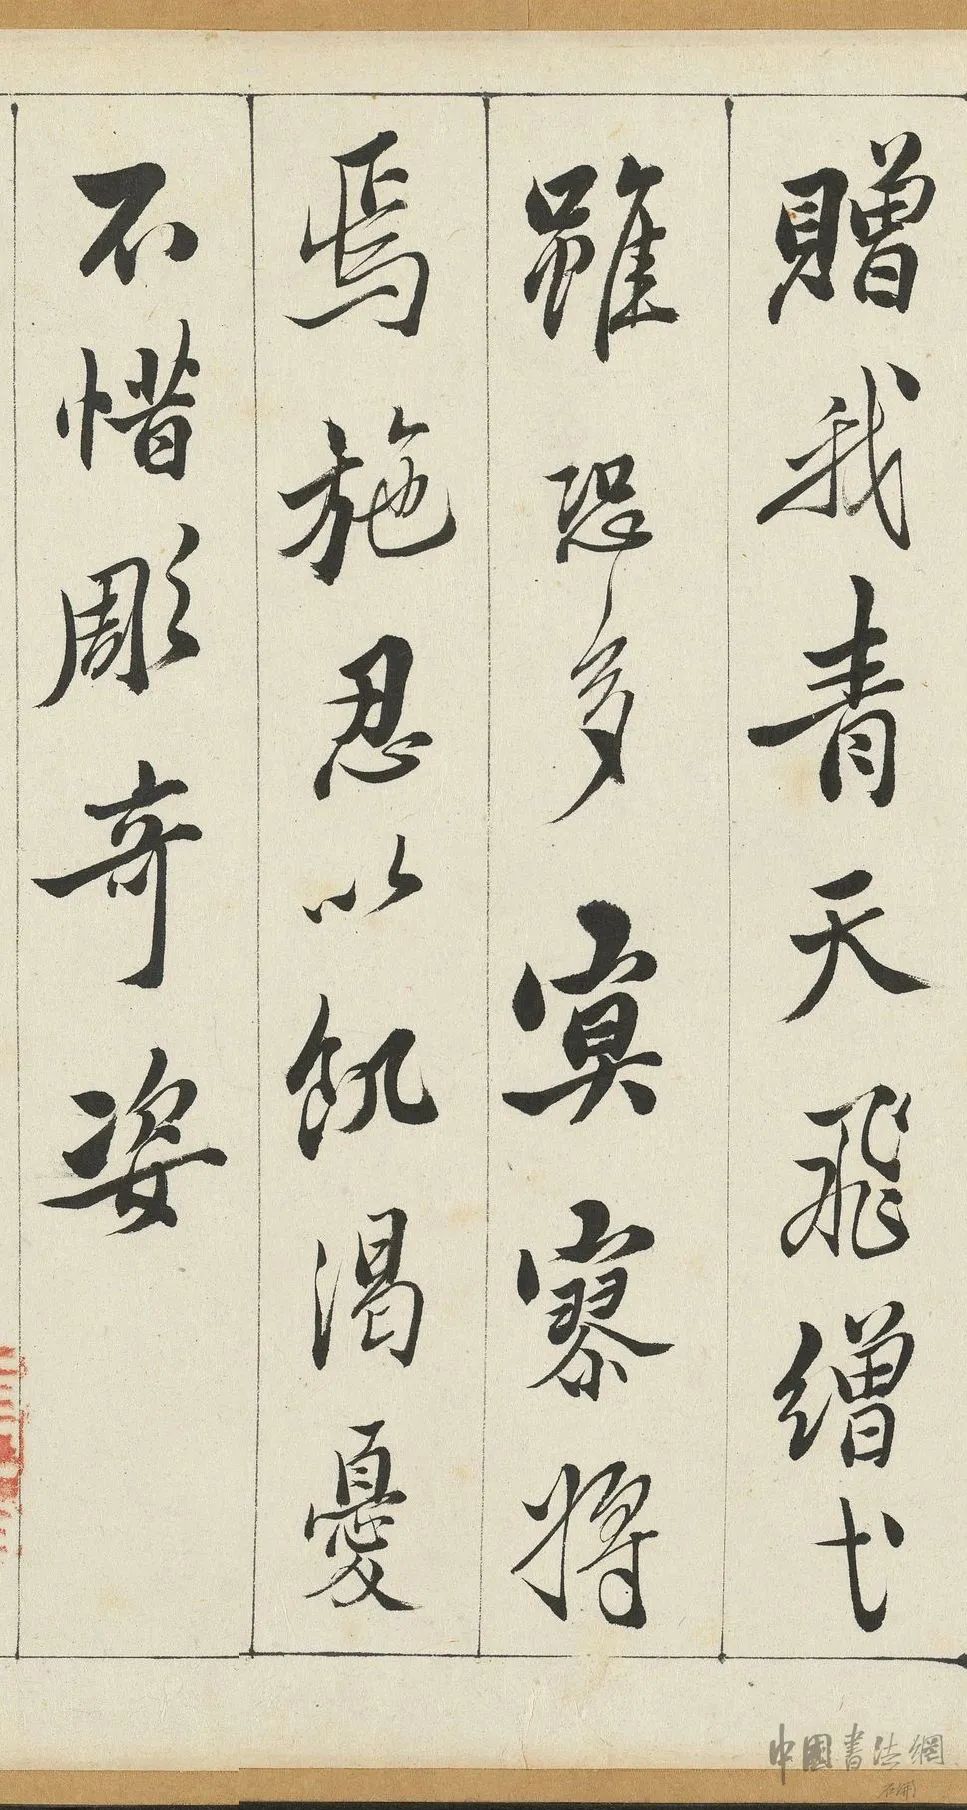 贈我青天飛繒弋
雖恐多寞寥將
焉施忍以飢渴憂
不惜彫奇姿
中國書法網